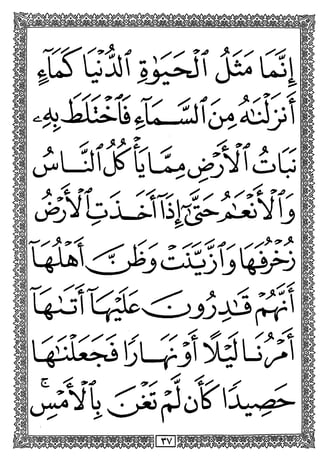 إِنَّمَا مَثَلُ ٱلْحَيَوٰةِ ٱلدُّنْيَا كَمَآءٍ
أَنزَلْنَٰهُ مِنَ ٱلسَّمَآءِ فَٱخْتَلَطَ بِهِۦ
نَبَاتُ ٱلْأَرْضِ مِمَّا يَأْكُلُ ٱلنَّاسُ
وَٱلْأَنْعَٰمُ حَتَّىٰٓ إِذَآ أَخَذَتِ ٱلْأَرْضُ
زُخْرُفَهَا وَٱزَّيَّنَتْ وَظَنَّ أَهْلُهَآ
أَنَّهُمْ قَٰدِرُونَ عَلَيْهَآ أَتَىٰهَآ
أَمْرُنَا لَيْلًا أَوْ نَهَارًا فَجَعَلْنَٰهَا
حَصِيدًا كَأَن لَّمْ تَغْنَ بِٱلْأَمْسِ ۚ
٣٧